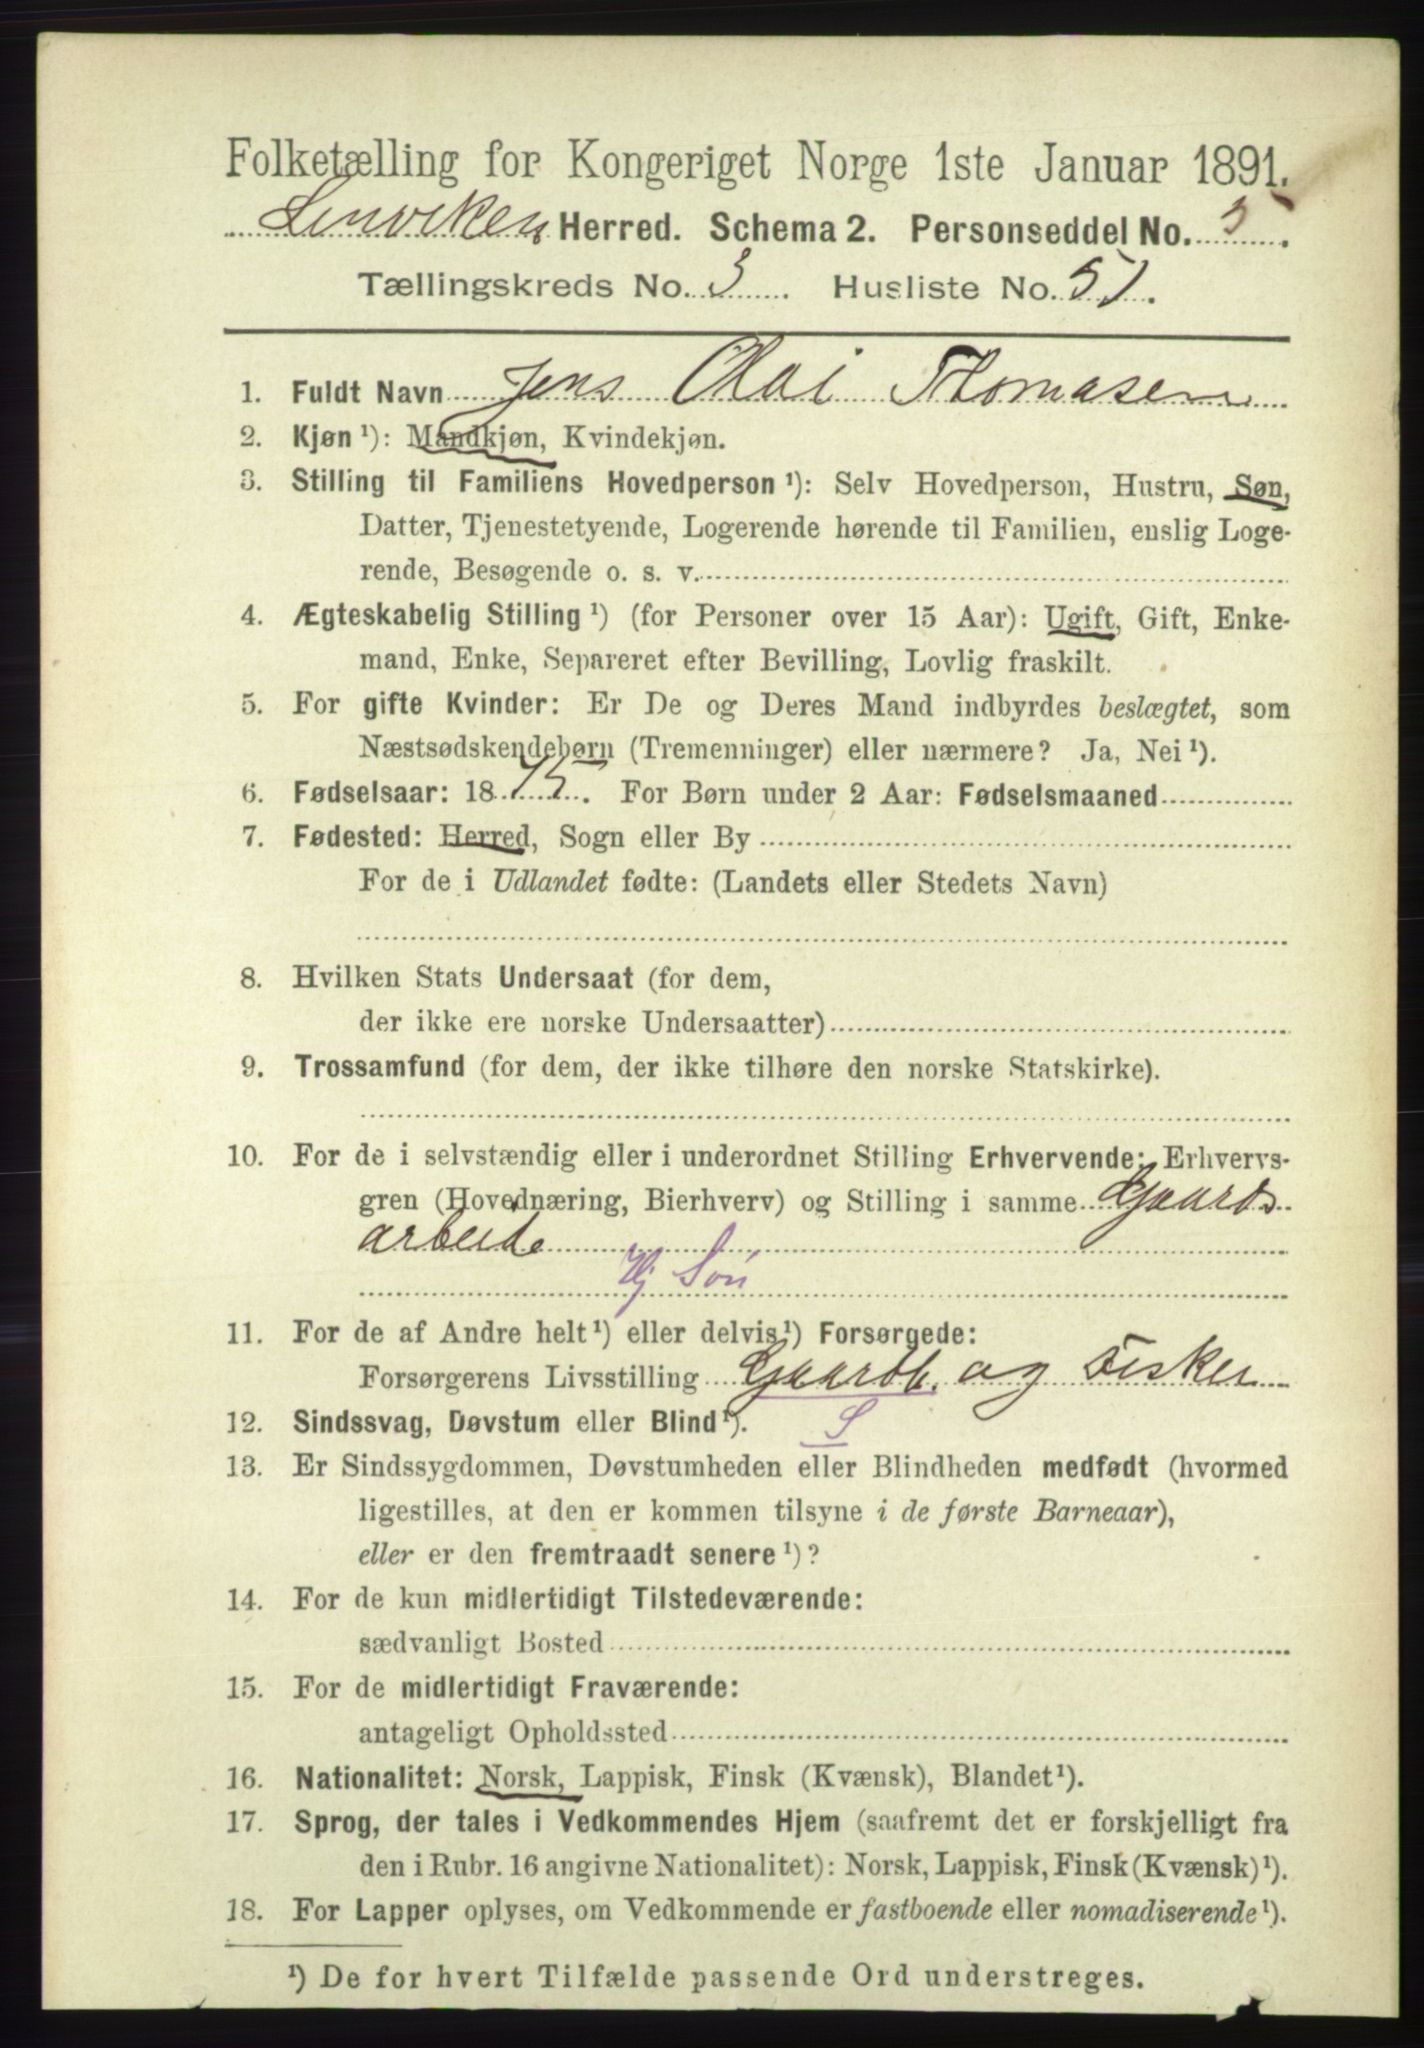 Folketælling for Kongeriget Norge 1ste Januar 1891.
Lenviken Herred. Schema 2. Personseddel No. 5.
Tællingskreds No. 3. Husliste No. 51.
1. Fuldt Navn Jens Olai Thomasen
2. Kjøn ¹): Mandkjøn, Kvindekjøn.
3. Stilling til Familiens Hovedperson ¹): Selv Hovedperson, Hustru, Søn,
Datter, Tjenestetyende, Logerende hørende til Familien, enslig Loge-
rende, Besøgende o. s. v.
4. Ægteskabelig Stilling ¹) (for Personer over 15 Aar): Ugift, Gift, Enke-
mand, Enke, Separeret efter Bevilling, Lovlig fraskilt.
5. For gifte Kvinder: Er De og Deres Mand indbyrdes beslægtet, som
Næstsødskendebørn (Tremenninger) eller nærmere? Ja, Nei ¹).
6. Fødselsaar: 1875. For Børn under 2 Aar: Fødselsmaaned
7. Fødested: Herred, Sogn eller By
For de i Udlandet fødte: (Landets eller Stedets Navn)
8. Hvilken Stats Undersaat (for dem,
der ikke ere norske Undersaatter)
9. Trossamfund (for dem, der ikke tilhøre den norske Statskirke).
10. For de i selvstændig eller i underordnet Stilling Erhvervende: Erhvervs-
gren (Hovednæring, Bierhverv) og Stilling i samme Gaards
arbeide
Hj Søn
11. For de af Andre helt ¹) eller delvis ¹) Forsørgede:
Forsørgerens Livsstilling Gaardb. og Fisker
12. Sindssvag, Døvstum eller Blind ¹). S
13. Er Sindssygdommen, Døvstumheden eller Blindheden medfødt (hvormed
ligestilles, at den er kommen tilsyne i de første Barneaar),
eller er den fremtraadt senere ¹)?
14. For de kun midlertidigt Tilstedeværende:
sædvanligt Bosted
15. For de midlertidigt Fraværende:
antageligt Opholdssted
16. Nationalitet: Norsk, Lappisk, Finsk (Kvænsk), Blandet ¹).
17. Sprog, der tales i Vedkommendes Hjem (saafremt det er forskjelligt fra
den i Rubr. 16 angivne Nationalitet): Norsk, Lappisk, Finsk (Kvænsk) ¹).
18. For Lapper oplyses, om Vedkommende er fastboende eller nomadiserende ¹).
¹) De for hvert Tilfælde passende Ord understreges.